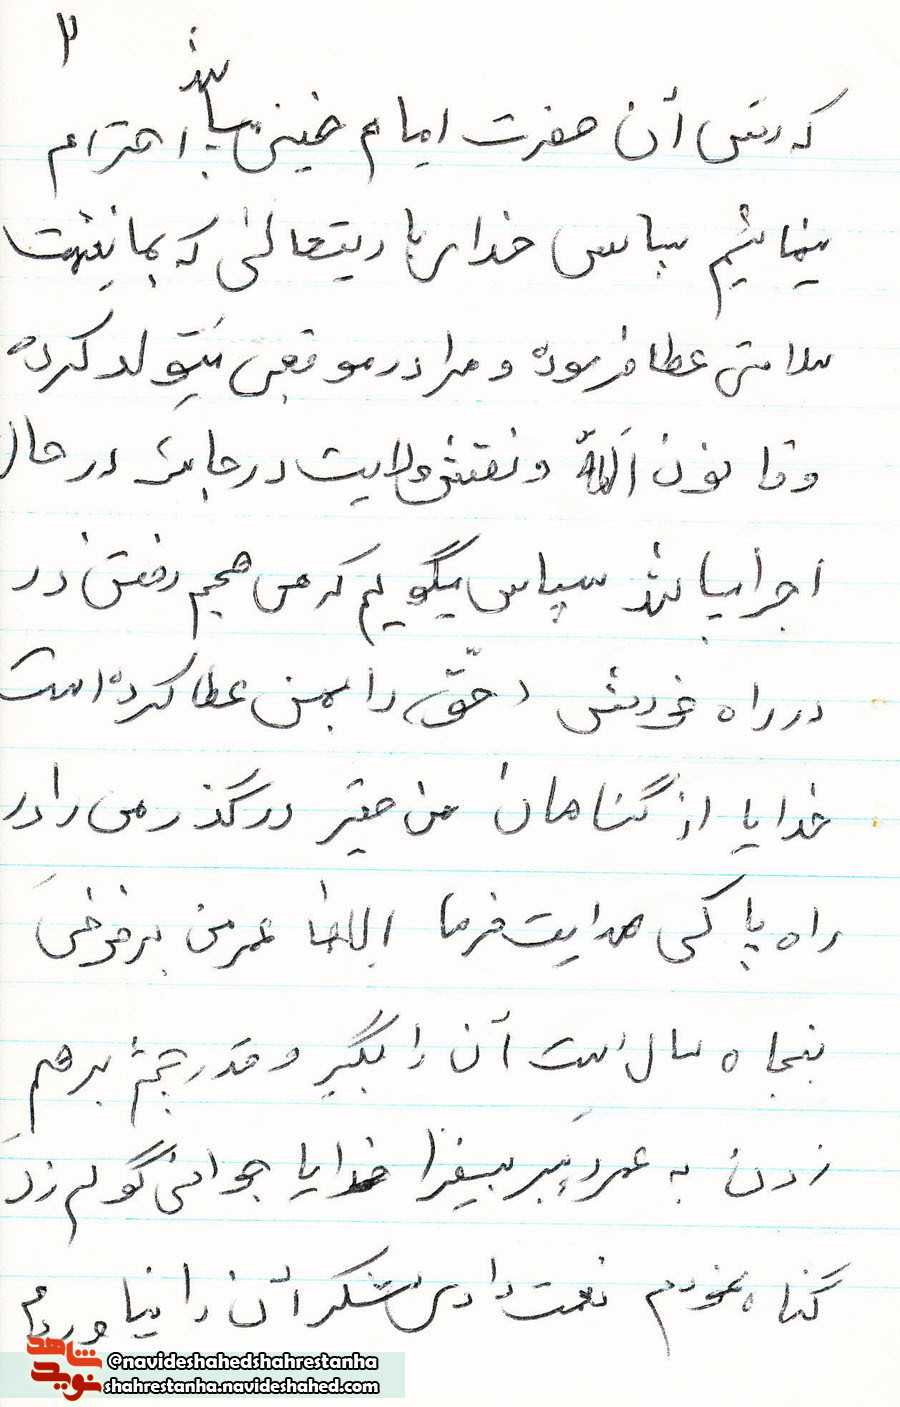 ۲
باشد
که رتش آن حضرت امام خمینی میباشد احترام
مینمائیم سپاس خدای باریتعالی که بما نعمت
سلامتی عطا فرموده و مرا در موقعی متولد کرده
و قانون الله و نقش ولایت در جامعه در حال
اجرا میباشد سپاس میگویم که من هم رفتن در
در راه خودش و حق را بمن عطا کرده است
خدایا از گناهان من حقیر درگذر من را در
راه پاکی هدایت فرما بارالها عمر من بر فرض
پنجاه سال است آن را بگیر و قدر چشم بر هم
زدن به عمر رهبر بیفزا خدایا جوانی گولم زد
گناه نمودم نعمت دادی شکر آن را نیاوردم
شاهد
نوید
@navideshahedshahrestanha
shahrestanha.navideshahed.com